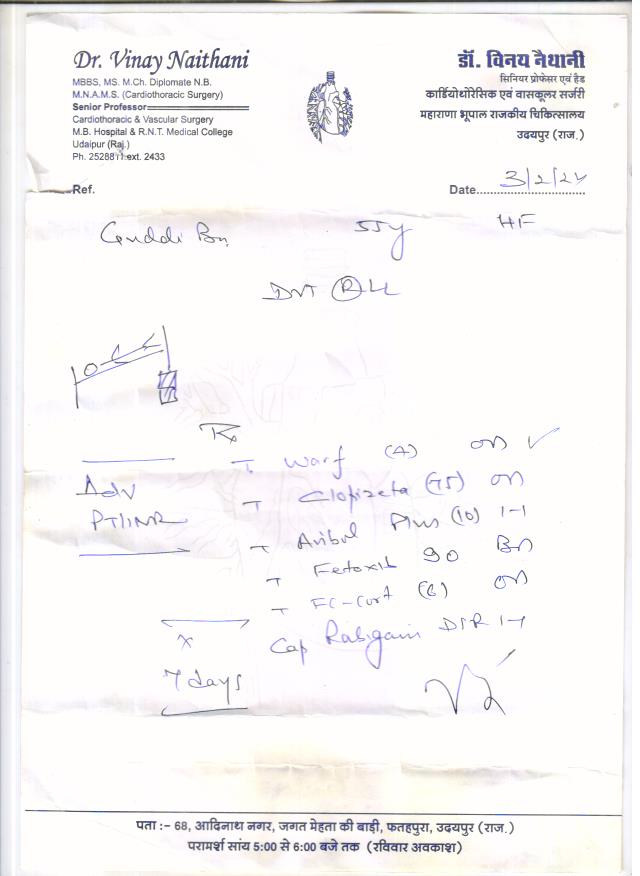 Dr. Vinay Naithani
MBBS, MS. M.Ch. Diplomate N.B.
M.N.A.M.S. (Cardiothoracic Surgery)
Senior Professor
Cardiothoracic & Vascular Surgery
M.B. Hospital & R.N.T. Medical College
Udaipur (Raj.)
Ph. 2528811 ext. 2433
डॉ. विनय नैथानी
सिनियर प्रोफेसर एवं हैड
कार्डियोथोरेसिक एवं वासकूलर सर्जरी
महाराणा भूपाल राजकीय चिकित्सालय
उदयपुर (राज.)
Ref.
Date 3/2/24
Guddi 55y HF
DVT (R) LL
Rx
T Warf (4) on ✓
Adv
PT/INR
T Clopizeta (75) on
T Plus (10) 1-1
T 90
T (6) on
Cap DSR 1-1
x
7 days
पता :- 68, आदिनाथ नगर, जगत मेहता की बाड़ी, फतहपुरा, उदयपुर (राज.)
परामर्श सांय 5:00 से 6:00 बजे तक (रविवार अवकाश)